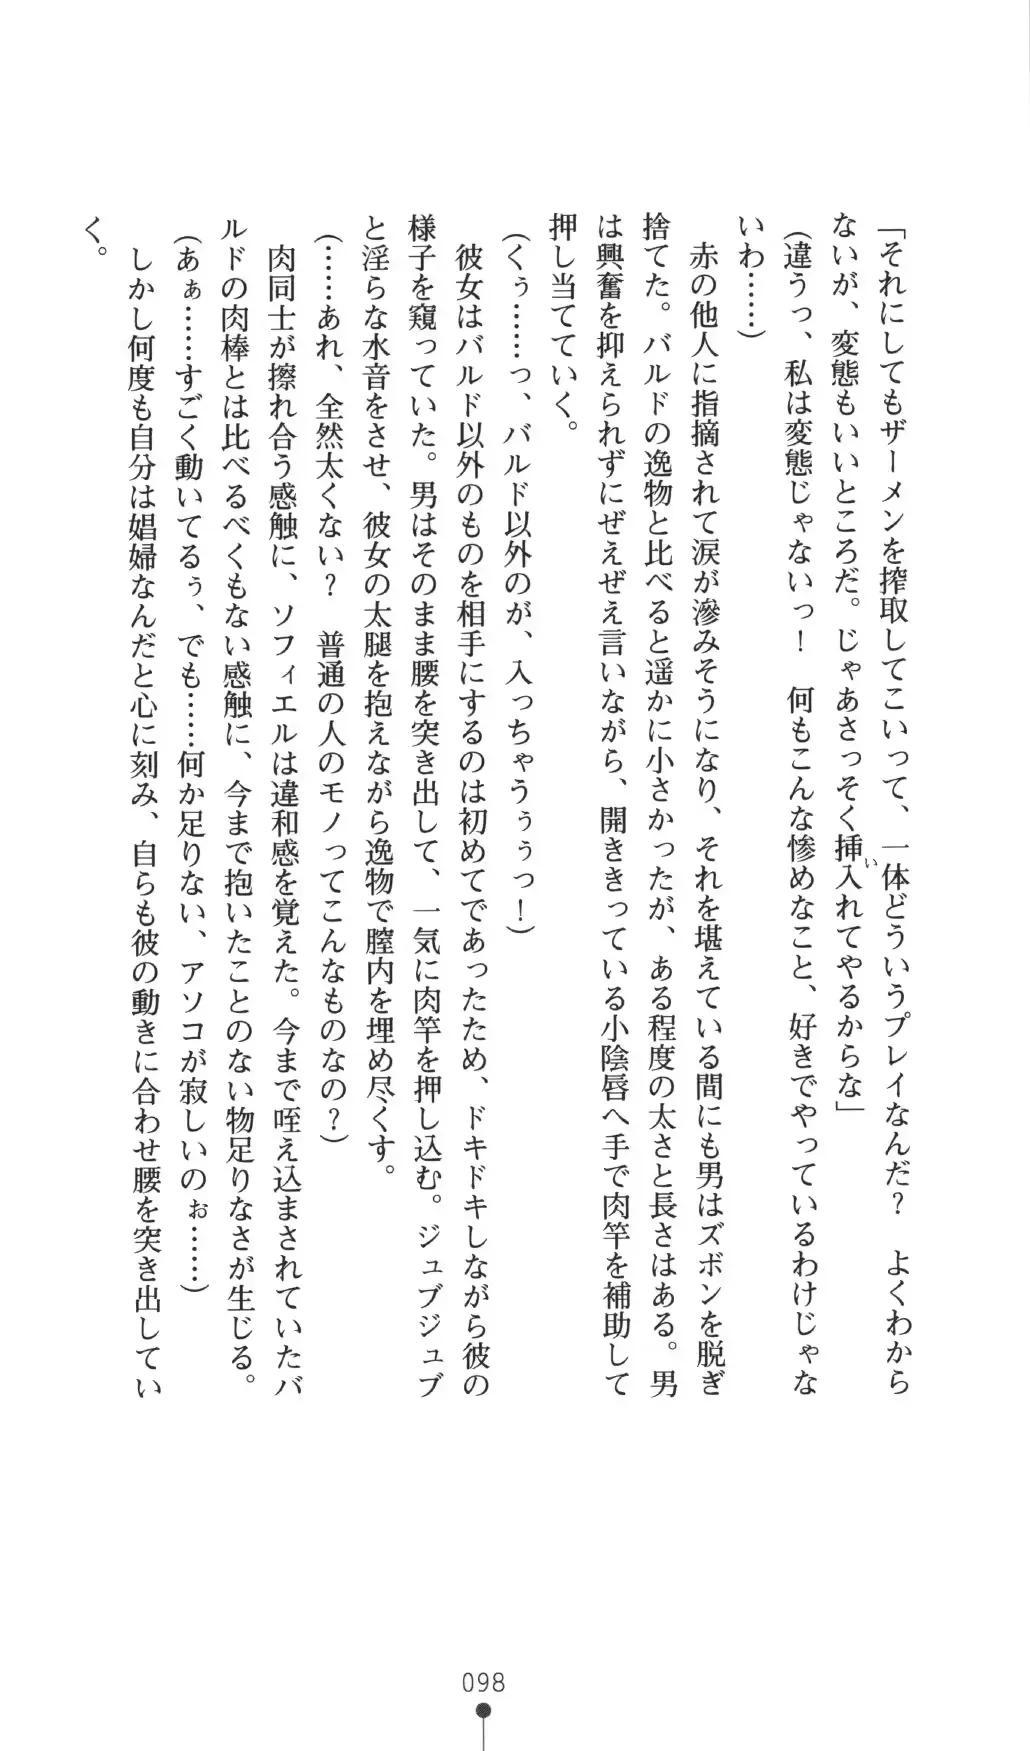 「それにしてもザーメンを搾取してこいって、一体どういうプレイなんだ？　よくわから
ないが、変態もいいところだ。じゃあさっそく挿入れてやるからな」
い
（違うっ、私は変態じゃないっ！　何もこんな惨めなこと、好きでやっているわけじゃな
いわ……）
　赤の他人に指摘されて涙が滲みそうになり、それを堪えている間にも男はズボンを脱ぎ
捨てた。バルドの逸物と比べると遥かに小さかったが、ある程度の太さと長さはある。男
は興奮を抑えられずにぜえぜえ言いながら、開ききっている小陰唇へ手で肉竿を補助して
押し当てていく。
（くぅ……っ、バルド以外のが、入っちゃうぅぅっ！）
　彼女はバルド以外のものを相手にするのは初めてであったため、ドキドキしながら彼の
様子を窺っていた。男はそのまま腰を突き出して、一気に肉竿を押し込む。ジュブジュブ
と淫らな水音をさせ、彼女の太腿を抱えながら逸物で膣内を埋め尽くす。
（……あれ、全然太くない？　普通の人のモノってこんなものなの？）
　肉同士が擦れ合う感触に、ソフィエルは違和感を覚えた。今まで咥え込まされていたバ
ルドの肉棒とは比べるべくもない感触に、今まで抱いたことのない物足りなさが生じる。
（あぁ……すごく動いてるぅ、でも……何か足りない、アソコが寂しいのぉ……）
　しかし何度も自分は娼婦なんだと心に刻み、自らも彼の動きに合わせ腰を突き出してい
く。
098